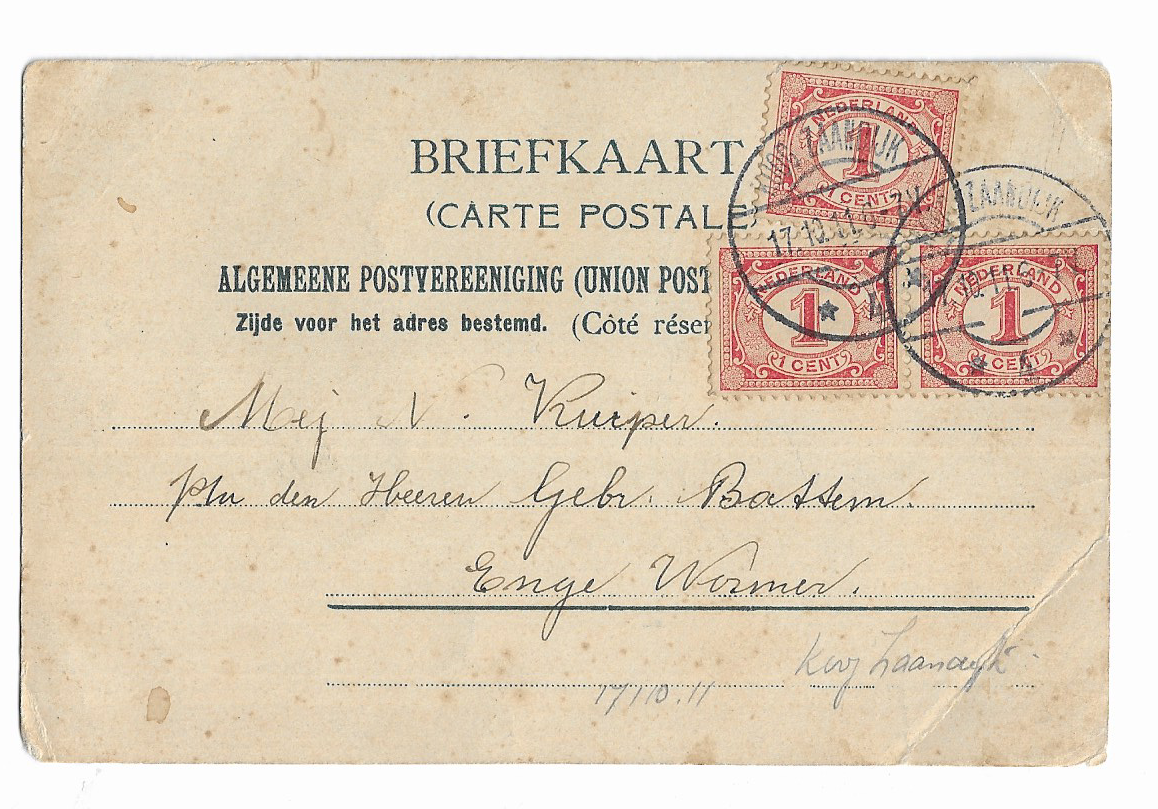 BRIEFKAART
(CARTE POSTAL
ALGEMEENE POSTVEREENIGING (UNION POST
Zijde voor het adres bestemd. (Côté réser
NEDERLAND
1
1 CENT
NEDERLAND
1
1 CENT
NEDERLAND
1
1 CENT
ZAANDIJK
17.10.11
ZAANDIJK
Mej N. Kuiper.
den Heeren Gebr. Battem.
Enge Wormer.
Koog Zaandijk
17/10.11